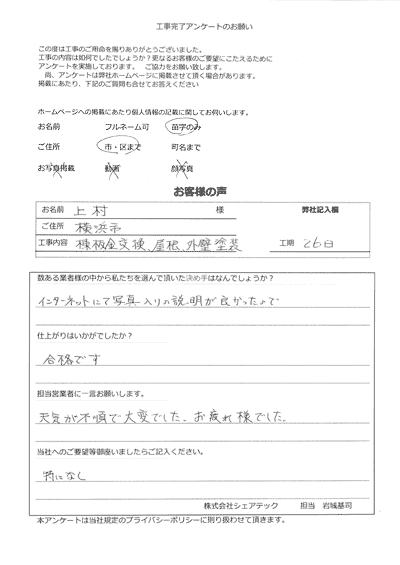 工事完了アンケートのお願い
この度は工事のご用命を賜りありがとうございました。
工事の内容は如何でしたでしょうか？更なるお客様のご要望にこたえるために
アンケートを実施しております。　ご協力をお願い致します。
尚、アンケートは弊社ホームページに掲載させて頂く場合があります。
掲載にあたり、下記のご質問も合せてお答えください
ホームページへの掲載にあたり個人情報の記載に関してお伺いします。
お名前　フルネーム可　苗字のみ
ご住所　市・区まで　町名まで
お写真掲載　動画　顔写真
お客様の声
お名前　上村　様　弊社記入欄
ご住所　横浜市
工事内容　棟板金交換、屋根、外壁塗装　工期　26日
数ある業者様の中から私たちを選んで頂いた決め手はなんでしょうか？
インターネットにて写真入りの説明が良かったので
仕上がりはいかがでしたか？
合格です
担当営業者に一言お願いします。
天気が不順で大変でした。お疲れ様でした。
当社へのご要望等御座いましたらご記入ください。
特になし
株式会社シェアテック　担当　岩城基司
本アンケートは当社規定のプライバシーポリシーに則り扱わせて頂きます。